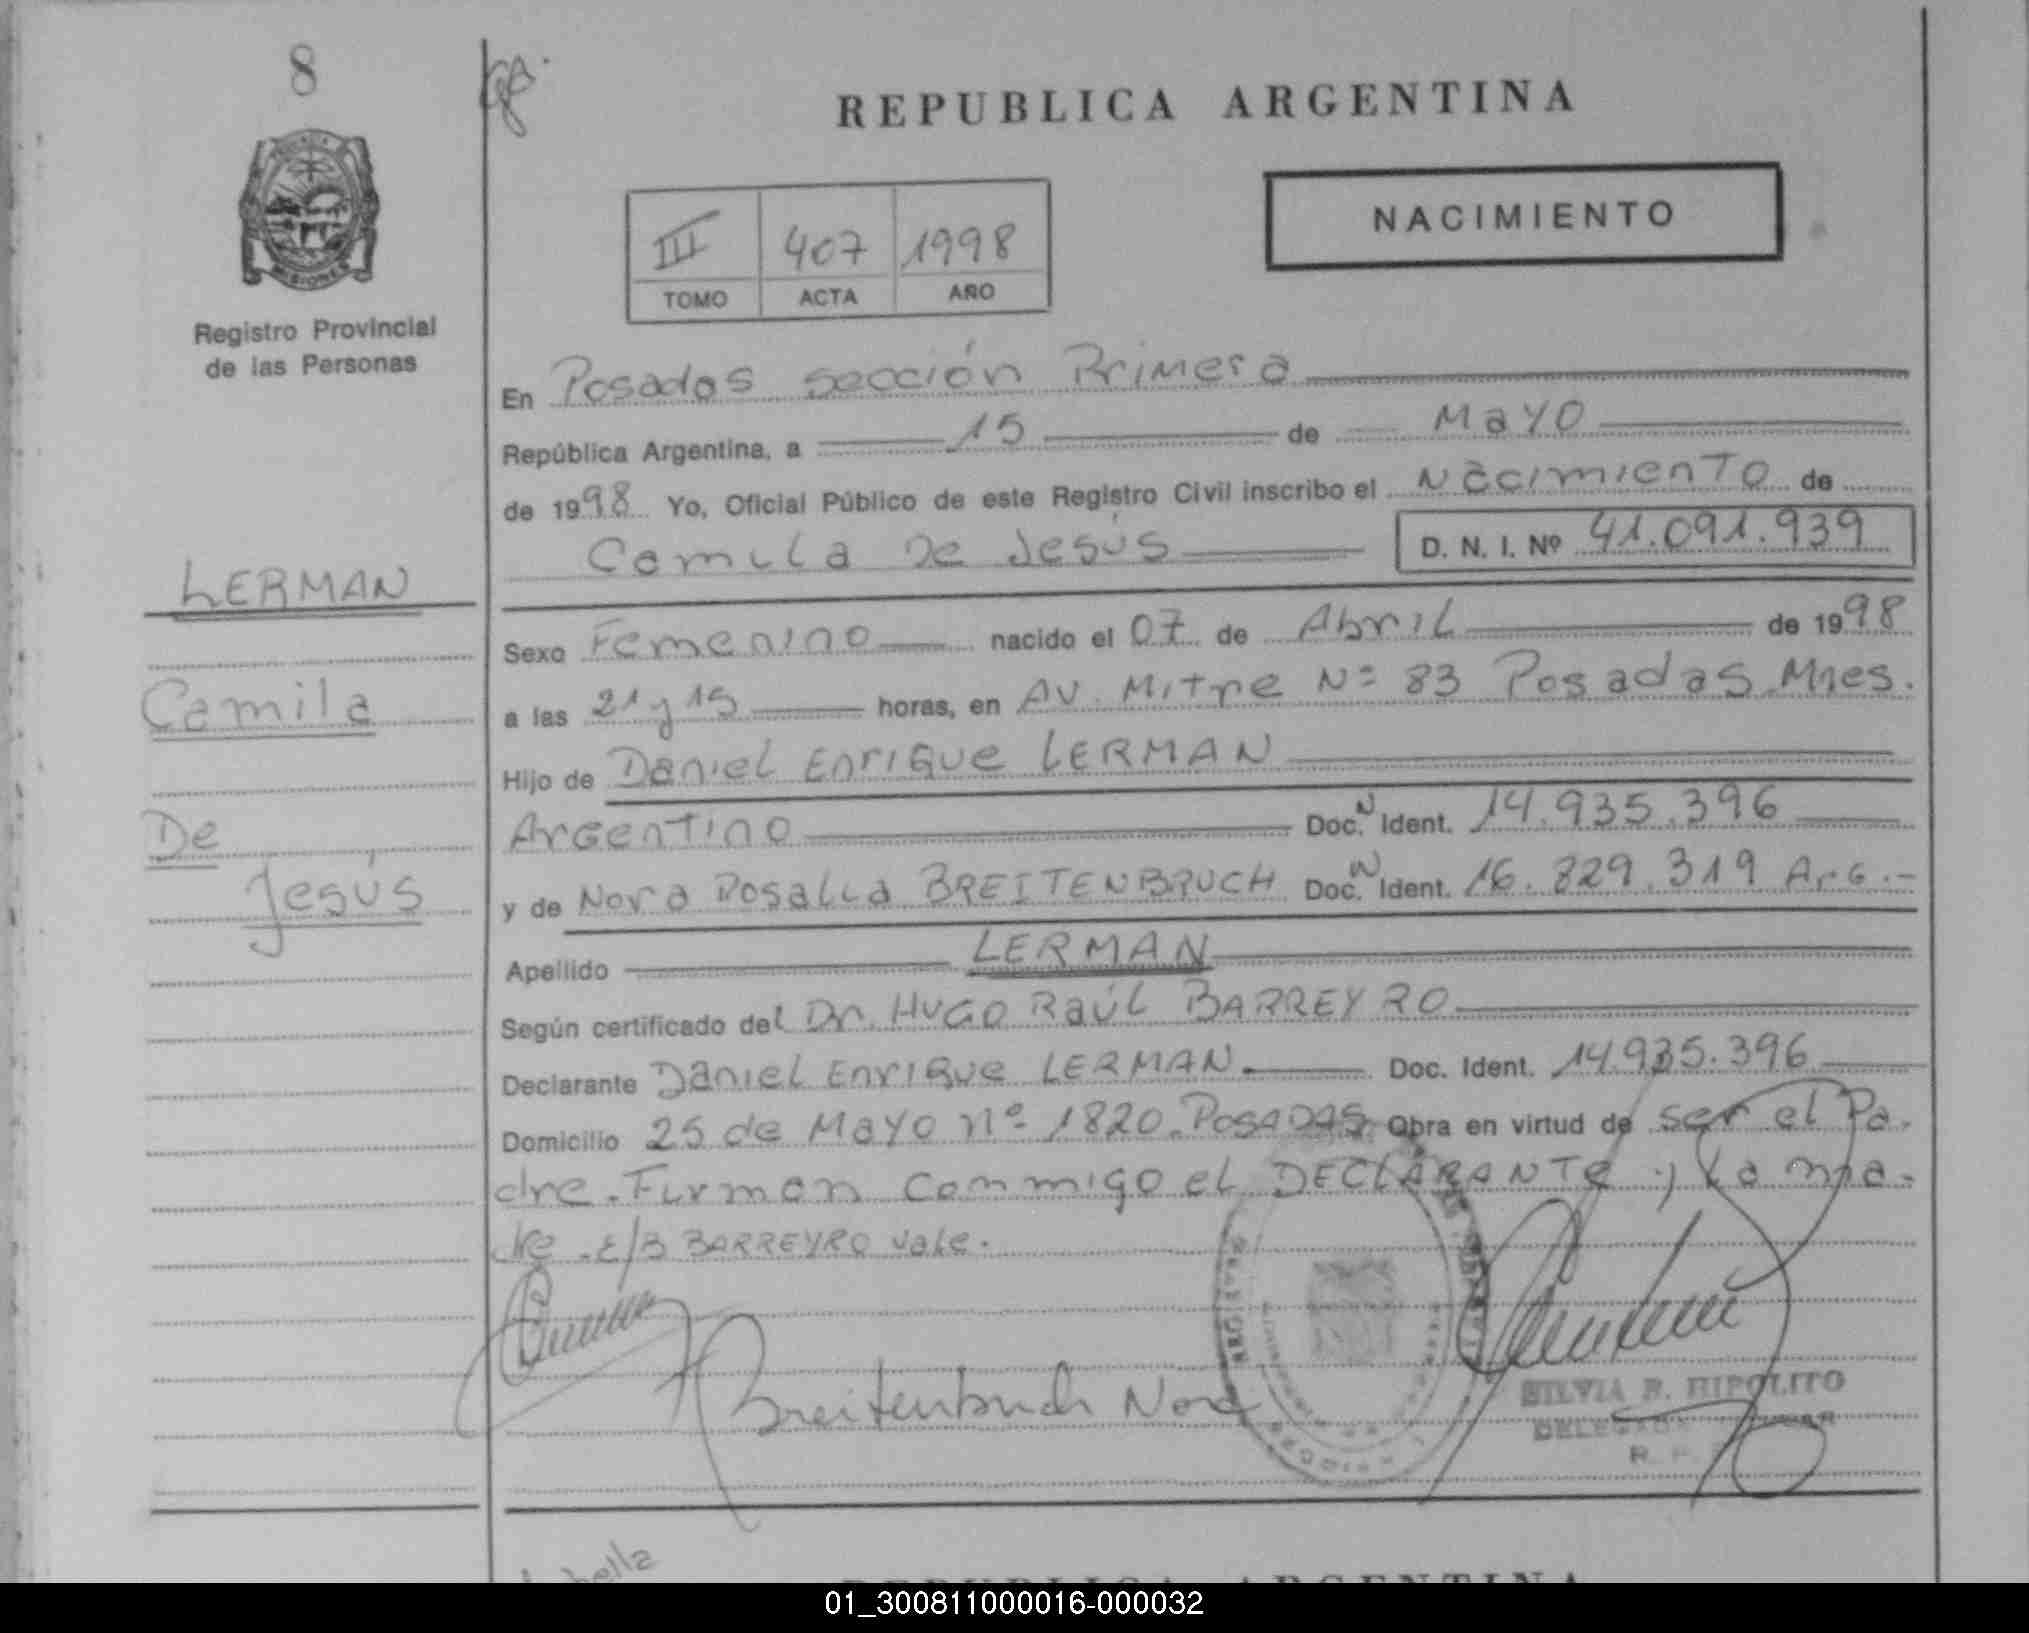 8
REPUBLICA ARGENTINA
NACIMIENTO
III 407 1998
TOMO ACTA AÑO
MISIONES
Registro Provincial
de las Personas
En Posadas sección Primera
República Argentina, a 15 de Mayo
de 1998 Yo, Oficial Público de este Registro Civil inscribo el Nacimiento de
Camila De Jesús D. N. I. Nº 41.091.939
LERMAN
Camila
De
Jesús
Sexo Femenino nacido el 07 de Abril de 1998
a las 21 y 15 horas, en AV. Mitre Nº 83 Posadas Mnes.
Hijo de Daniel Enrique LERMAN
Argentino Doc. N Ident. 14.935.396
y de Nora Rosalia BREITENBRUCH Doc. N Ident. 16.829.319 Arg.-
Apellido LERMAN
Según certificado del Dr. Hugo Raúl BARREYRO
Declarante Daniel Enrique LERMAN Doc. Ident. 14.935.396
Domicilio 25 de Mayo nº 1820. POSADAS Obra en virtud de ser el Pa-
dre. Firman conmigo el DECLARANTE y La ma-
dre. E/B BARREYRO vale.
Breitenbruch Nora
SILVIA R. HIPOLITO
R. P.
REPUBLICA ARGENTINA
01_300811000016-000032